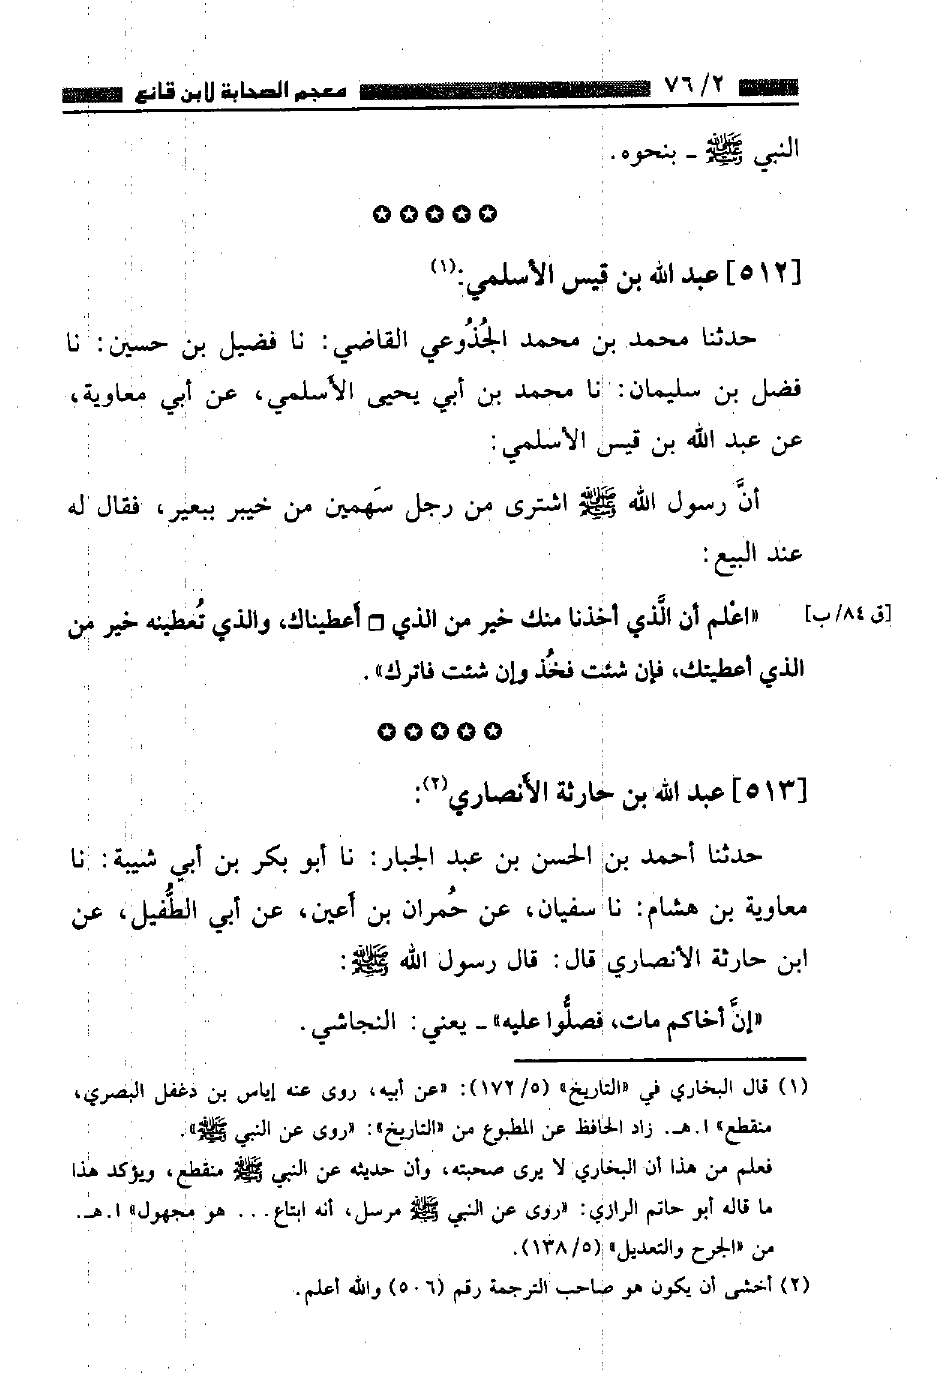 ٧٦/٢ معجم الصحابة لابن قانع
النبي ﷺ ـ بنحوه.
[٥١٢] عبد الله بن قيس الأسلمي:(١)
حدثنا محمد بن محمد الجُذُوعي القاضي: نا فضيل بن حسين: نا
فضل بن سليمان: نا محمد بن أبي يحيى الأسلمي، عن أبي معاوية،
عن عبد الله بن قيس الأسلمي:
أنَّ رسول الله ﷺ اشترى من رجل سَهمين من خيبر ببعير، فقال له
عند البيع:
«اعْلم أن الَّذي أخذنا منك خير من الذي □ أعطيناك، والذي تُعطينه خير من [ق ٨٤/ب]
الذي أعطيتك، فإن شئت فخُذ وإن شئت فاترك».
[٥١٣] عبد الله بن حارثة الأنصاري(٢):
حدثنا أحمد بن الحسن بن عبد الجبار: نا أبو بكر بن أبي شيبة: نا
معاوية بن هشام: نا سفيان، عن حُمران بن أعين، عن أبي الطُّفيل، عن
ابن حارثة الأنصاري قال: قال رسول الله ﷺ:
«إنَّ أخاكم مات، فصلُّوا عليه» ـ يعني: النجاشي.
(١) قال البخاري في «التاريخ» (١٧٢/٥): «عن أبيه، روى عنه إياس بن دغفل البصري،
منقطع» ا.هـ. زاد الحافظ عن المطبوع من «التاريخ»: «روى عن النبي ﷺ».
فعلم من هذا أن البخاري لا يرى صحبته، وأن حديثه عن النبي ﷺ منقطع، ويؤكد هذا
ما قاله أبو حاتم الرازي: «روى عن النبي ﷺ مرسل، أنه ابتاع... هو مجهول» ا.هـ.
من «الجرح والتعديل» (١٣٨/٥).
(٢) أخشى أن يكون هو صاحب الترجمة رقم (٥٠٦) والله أعلم.